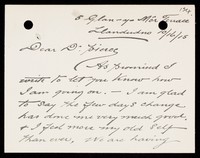 8 Glan-y-Môr Terrace
Llandudno
Dear Dr
As promised I
write to let you know how
I am going on. — I am glad
to say the few days change
has done me very much good,
& I feel more my old self
than ever. We are having